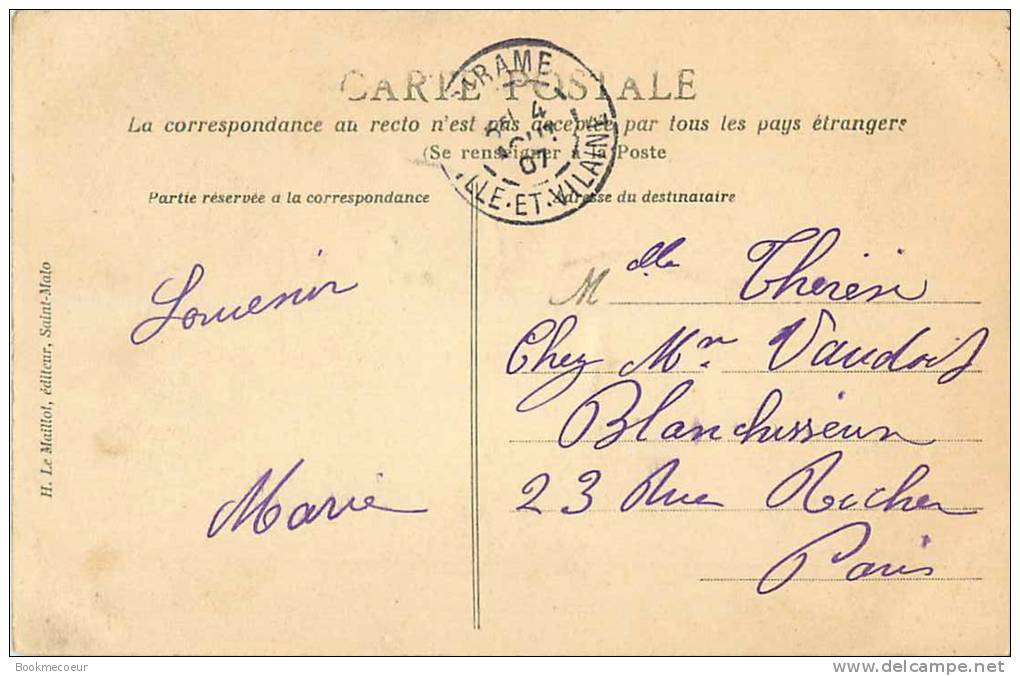 CARTE POSTALE
La correspondance au recto n'est pas acceptée par tous les pays étrangers
(Se renseigner à la Poste
Partie réservée a la correspondance
Adresse du destinataire
ARAME
4
07
ILLE·ET·VILAINE
H. Le Maillot, éditeur, Saint-Malo
Souvenir
Marie
Mlle Thérèse
Chez Mr Vaudois
Blanchisseur
23 Rue Richer
Paris
Bookmecoeur
delcampe.net